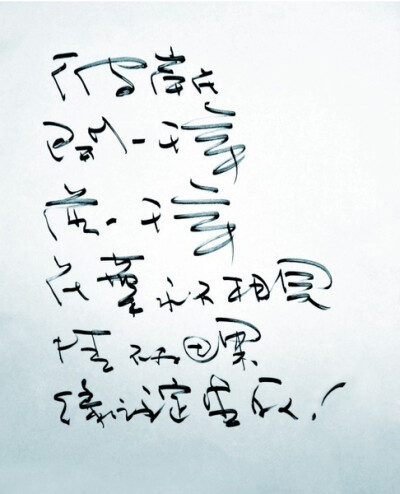 彼岸花
開一千年
落一千年
花葉永不相見
情不为因果
缘注定生死！